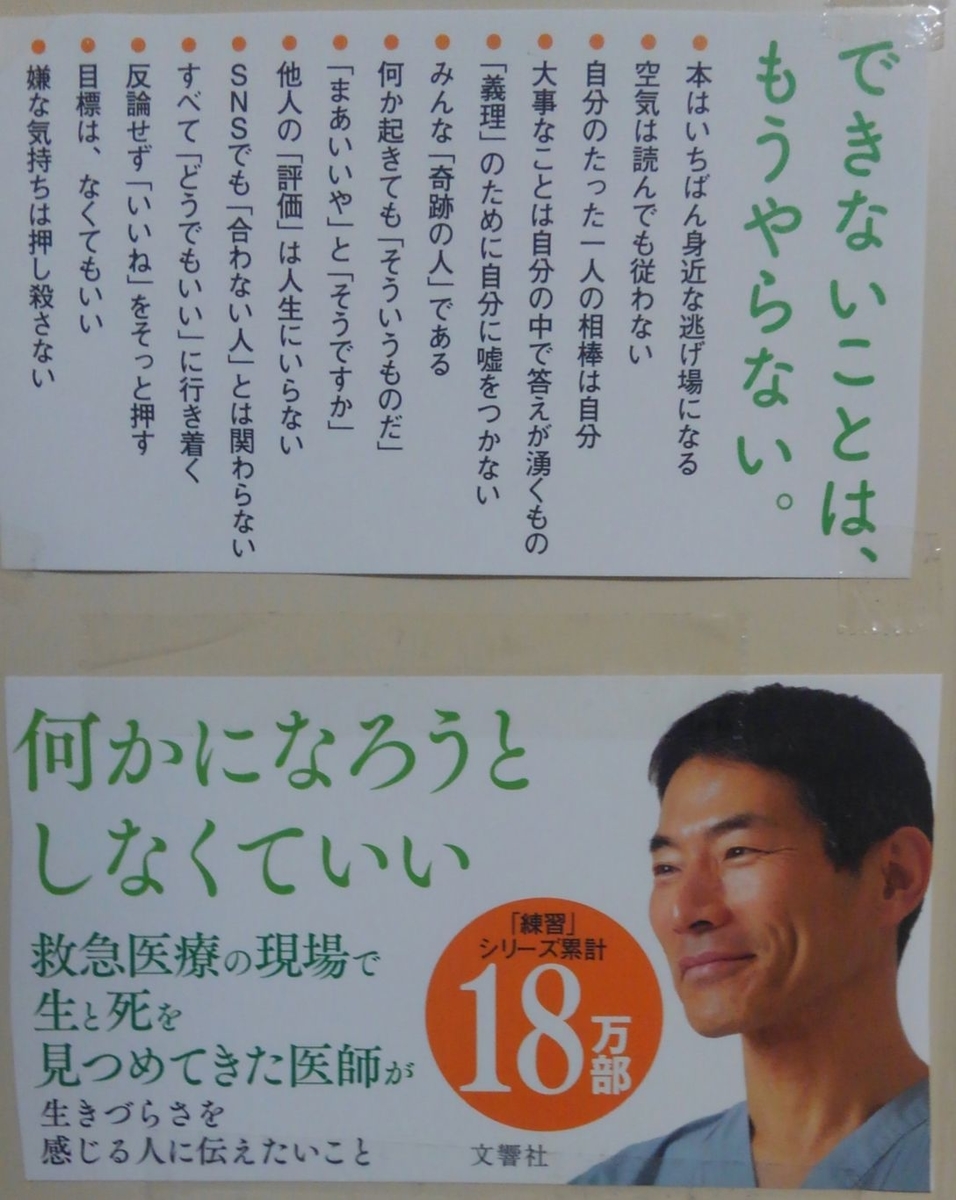 できないことは、
もうやらない。
● 本はいちばん身近な逃げ場になる
● 空気は読んでも従わない
● 自分のたった一人の相棒は自分
● 大事なことは自分の中で答えが湧くもの
● 「義理」のために自分に嘘をつかない
● みんな「奇跡の人」である
● 何か起きても「そういうものだ」
● 「まあいいや」と「そうですか」
● 他人の「評価」は人生にいらない
● SNSでも「合わない人」とは関わらない
● すべて「どうでもいい」に行き着く
● 反論せず「いいね」をそっと押す
● 目標は、なくてもいい
● 嫌な気持ちは押し殺さない
何かになろうと
しなくていい
救急医療の現場で
生と死を
見つめてきた医師が
生きづらさを
感じる人に伝えたいこと
「練習」
シリーズ累計
18万部
文響社